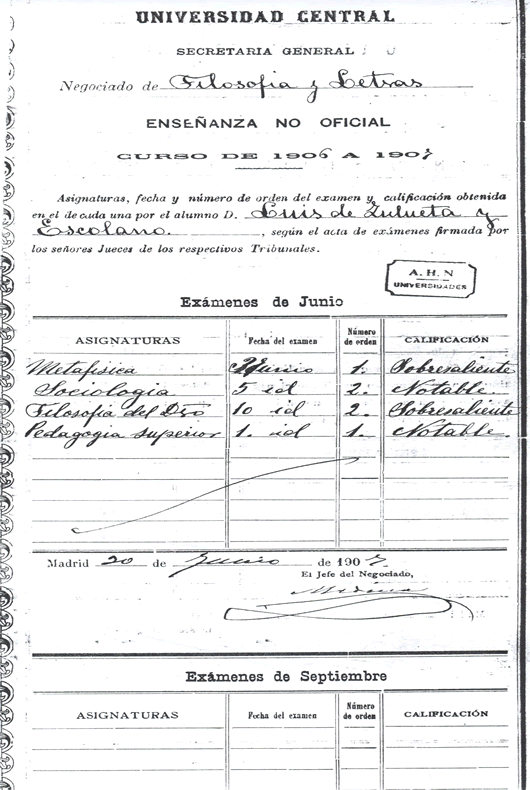 UNIVERSIDAD CENTRAL
SECRETARIA GENERAL
Negociado de Filosofia y Letras
ENSEÑANZA NO OFICIAL
CURSO DE 1906 A 1907
Asignaturas, fecha y número de orden del examen y calificación obtenida
en el de cada una por el alumno D. Luis de Zulueta y
Escolano. , según el acta de exámenes firmada por
los señores Jueces de los respectivos Tribunales.
A. H. N
UNIVERSIDADES
Exámenes de Junio
ASIGNATURAS Fecha del examen Número de orden CALIFICACIÓN
Metafisica Junio 1. Sobresaliente
Sociologia 5 id 2. Notable.
Filosofia del Dro 10 id 2. Sobresaliente
Pedagogia superior 1. id 1. Notable.
Madrid 20 de Junio de 1907.
El Jefe del Negociado,
Exámenes de Septiembre
ASIGNATURAS Fecha del examen Número de orden CALIFICACIÓN